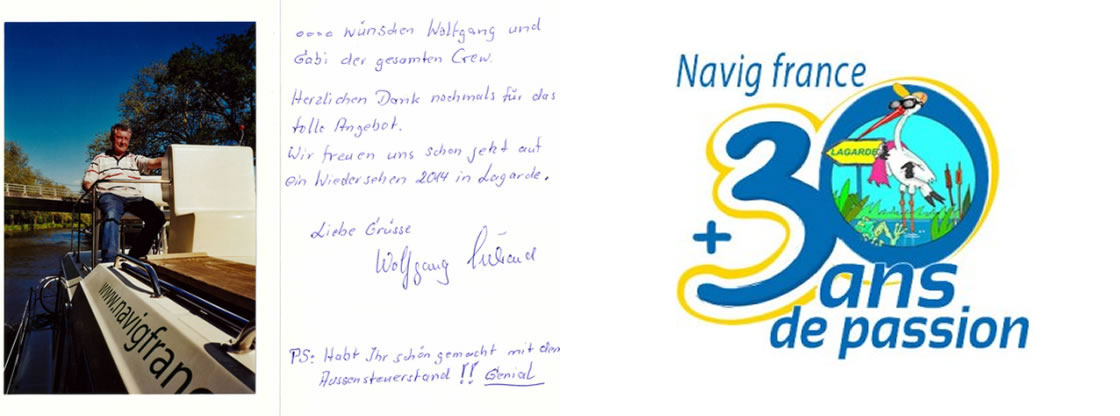 www.navigfranc
.... wünschen Wolfgang und
Gabi der gesamten Crew.
Herzlichen Dank nochmals für das
tolle Angebot.
Wir freuen uns schon jetzt auf
ein Wiedersehen 2014 in Lagarde.
Liebe Grüsse
Wolfgang
PS: Habt Ihr schön gemacht mit den
Aussensteuerstand !! Genial
Navig france
LAGARDE
+30 ans
de passion